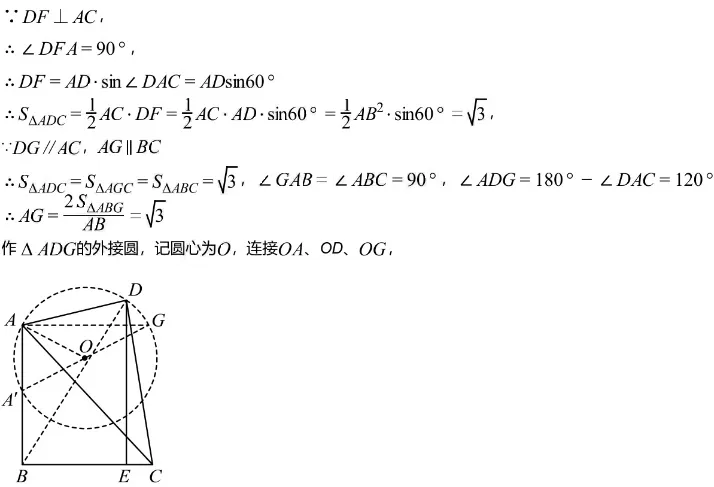 ∵ DF⊥AC,
∴ ∠DFA=90°,
∴DF=AD·sin∠DAC=ADsin60°
∴S△ADC=1/2AC·DF=1/2AC·AD·sin60°=1/2AB²·sin60°=√3,
∵DG∥AC, AG∥BC
∴S△ADC=S△AGC=S△ABC=√3, ∠GAB=∠ABC=90°, ∠ADG=180°-∠DAC=120°
∴AG=2S△ABG/AB=√3
作△ADG的外接圆，记圆心为O，连接OA、OD、OG，
D
A
G
O
A′
B
E
C